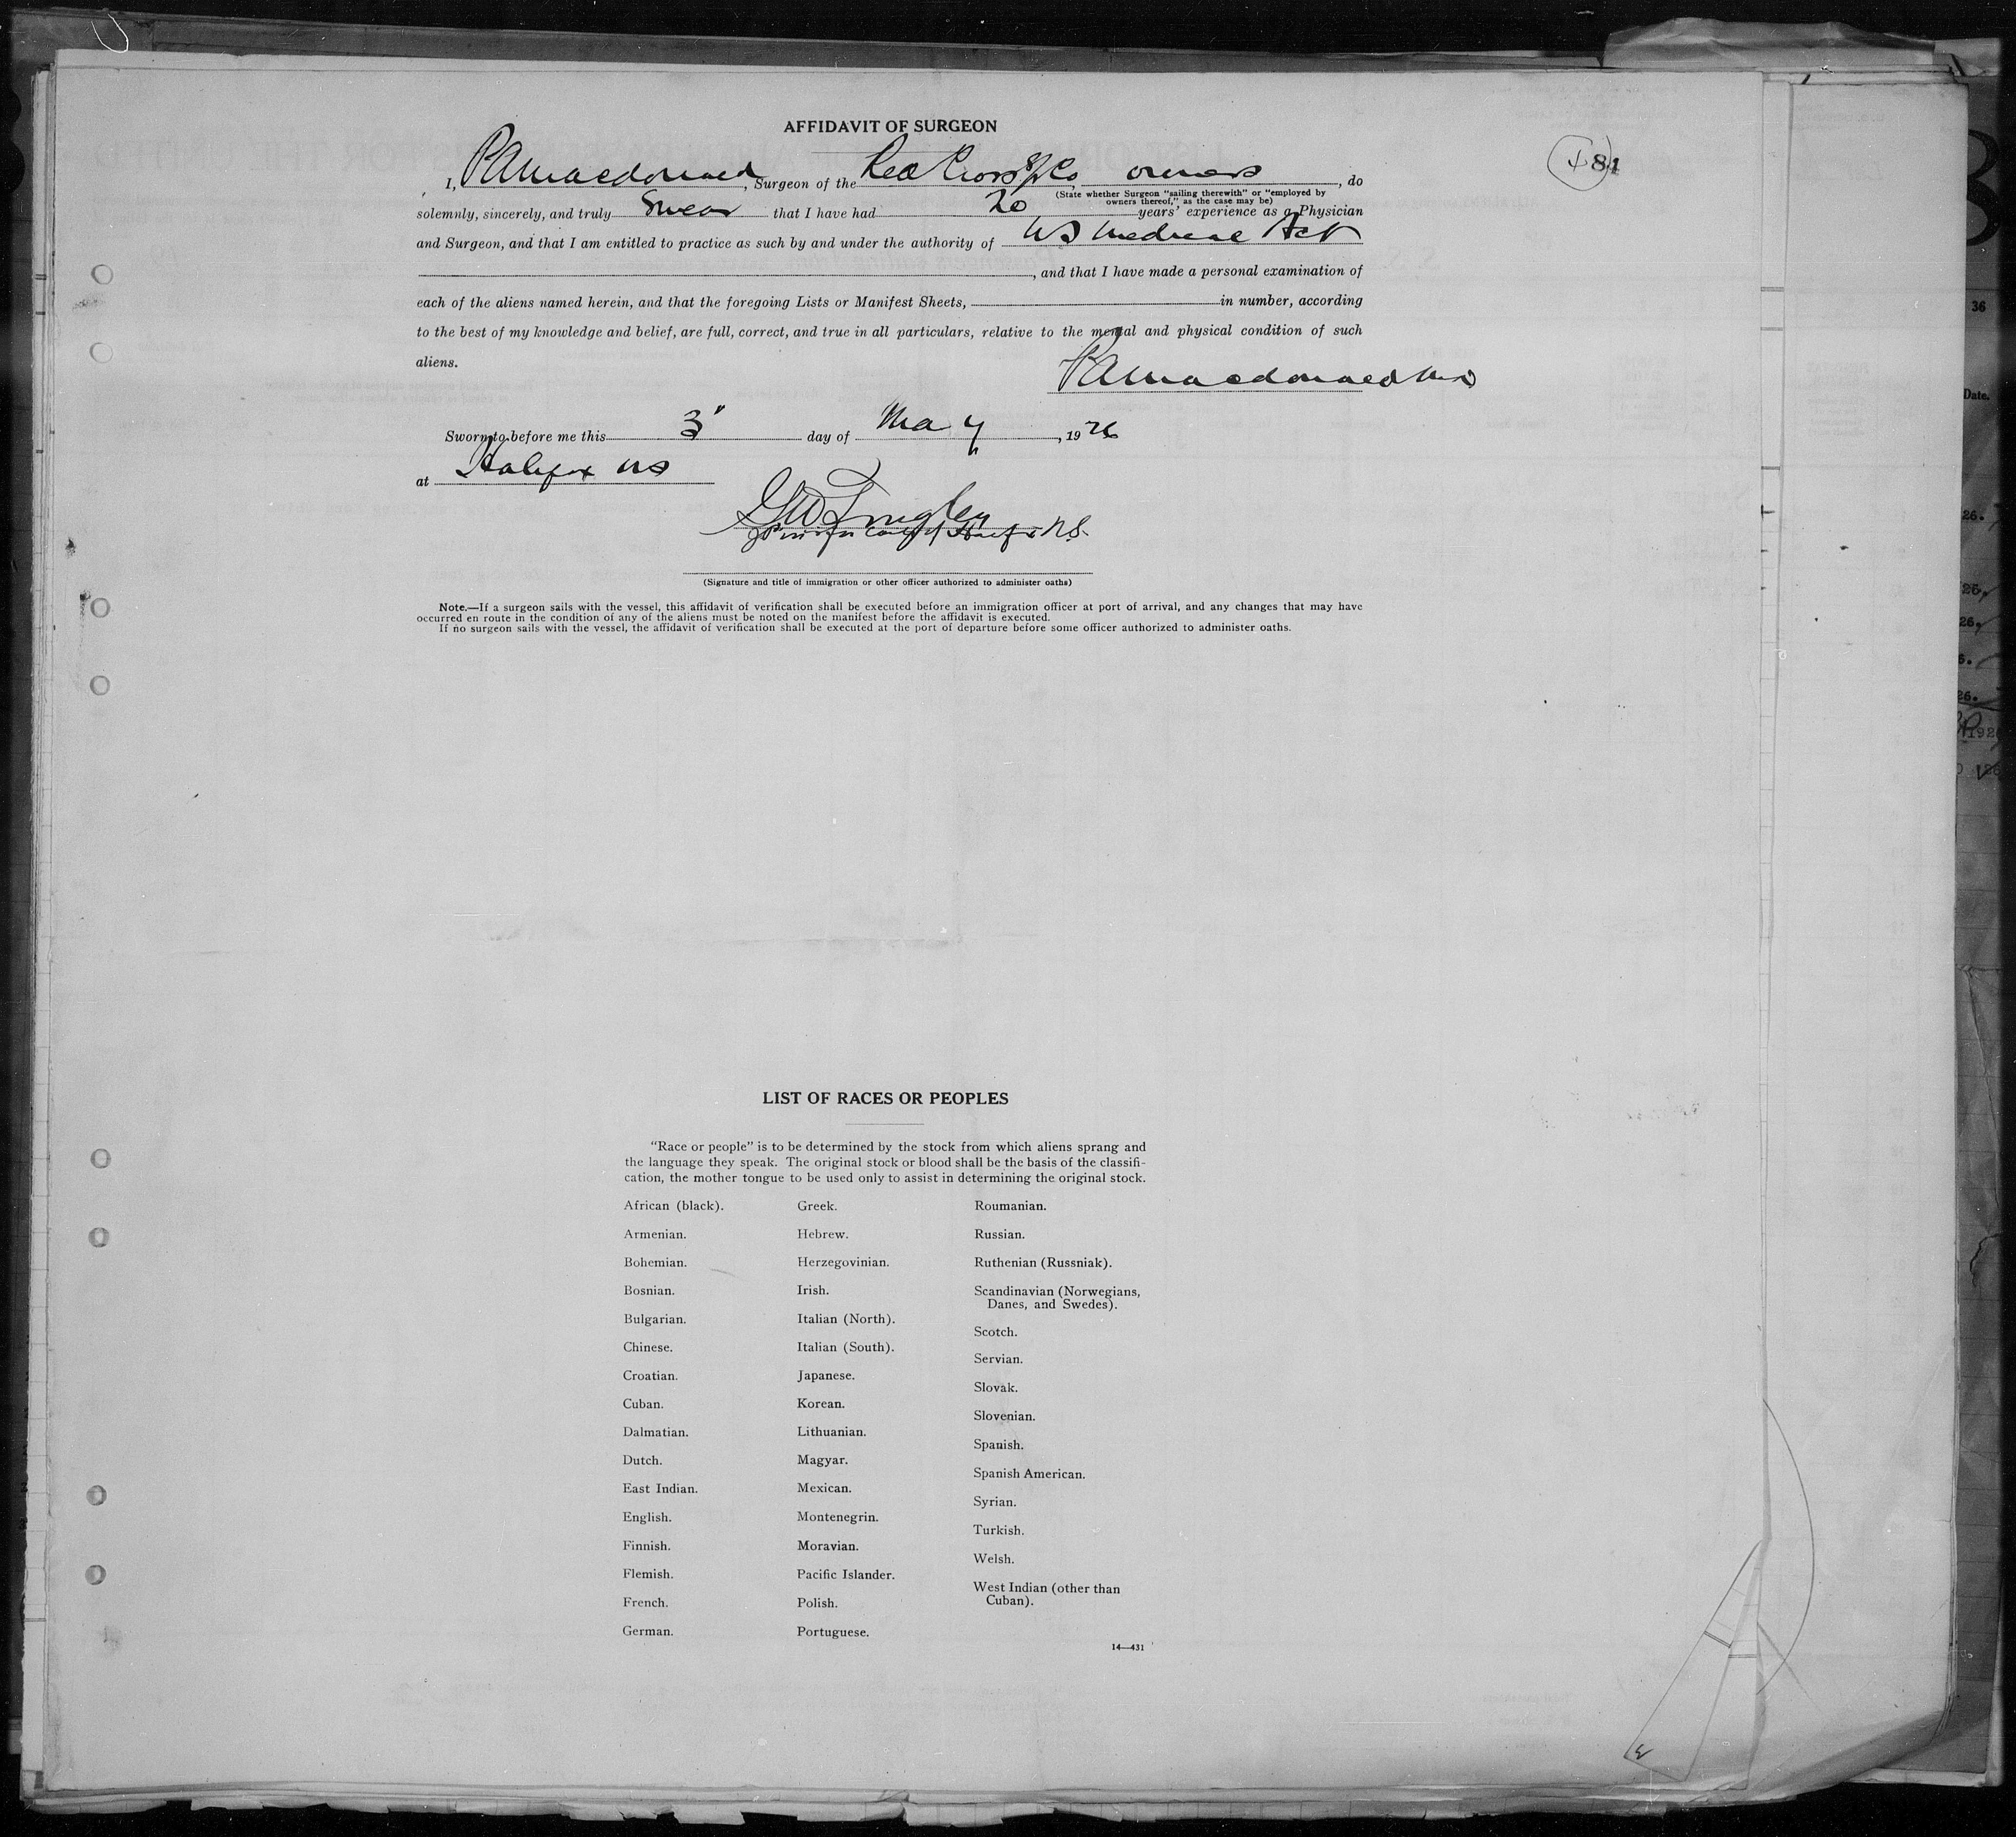 AFFIDAVIT OF SURGEON
81
I, P A Macdonald, Surgeon of the Red Cross owners, do
(State whether Surgeon "sailing therewith" or "employed by
owners thereof," as the case may be)
solemnly, sincerely, and truly Swear that I have had 20 years' experience as a Physician
and Surgeon, and that I am entitled to practice as such by and under the authority of NS Medical Act
, and that I have made a personal examination of
each of the aliens named herein, and that the foregoing Lists or Manifest Sheets, in number, according
to the best of my knowledge and belief, are full, correct, and true in all particulars, relative to the mental and physical condition of such
aliens.
P A Macdonald MD
Sworn to before me this 3" day of May, 1926
at Halifax NS
(Signature and title of immigration or other officer authorized to administer oaths)
Note.—If a surgeon sails with the vessel, this affidavit of verification shall be executed before an immigration officer at port of arrival, and any changes that may have
occurred en route in the condition of any of the aliens must be noted on the manifest before the affidavit is executed.
If no surgeon sails with the vessel, the affidavit of verification shall be executed at the port of departure before some officer authorized to administer oaths.
36
Date.
LIST OF RACES OR PEOPLES
"Race or people" is to be determined by the stock from which aliens sprang and
the language they speak. The original stock or blood shall be the basis of the classifi-
cation, the mother tongue to be used only to assist in determining the original stock.
African (black).
Armenian.
Bohemian.
Bosnian.
Bulgarian.
Chinese.
Croatian.
Cuban.
Dalmatian.
Dutch.
East Indian.
English.
Finnish.
Flemish.
French.
German.
Greek.
Hebrew.
Herzegovinian.
Irish.
Italian (North).
Italian (South).
Japanese.
Korean.
Lithuanian.
Magyar.
Mexican.
Montenegrin.
Moravian.
Pacific Islander.
Polish.
Portuguese.
Roumanian.
Russian.
Ruthenian (Russniak).
Scandinavian (Norwegians,
Danes, and Swedes).
Scotch.
Servian.
Slovak.
Slovenian.
Spanish.
Spanish American.
Syrian.
Turkish.
Welsh.
West Indian (other than
Cuban).
14—431